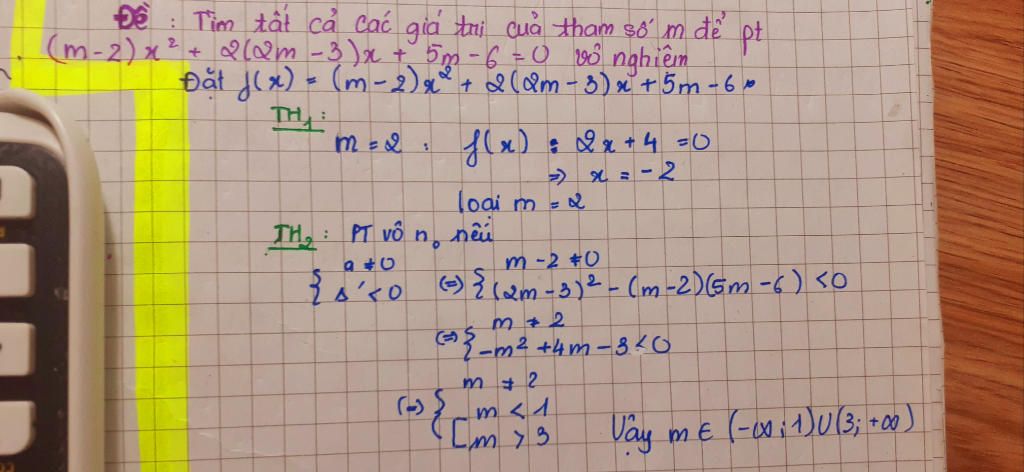 Đề : Tìm tất cả các giá trị của tham số m để pt
(m-2)x² + 2(2m-3)x + 5m-6=0 vô nghiệm
Đặt f(x) = (m-2)x² + 2(2m-3)x+5m-6
TH₁:
m=2 : f(x) = 2x+4=0
⇒ x = -2
loại m = 2
TH₂: PT vô n₀ nếu
{ a≠0 (=) { m-2≠0
{ Δ'<0 { (2m-3)² - (m-2)(5m-6) <0
(=) { m ≠ 2
{ -m² +4m-3<0
m ≠ 2
(=) { m < 1
[ m > 3 Vậy m ∈ (-∞;1)∪(3;+∞)